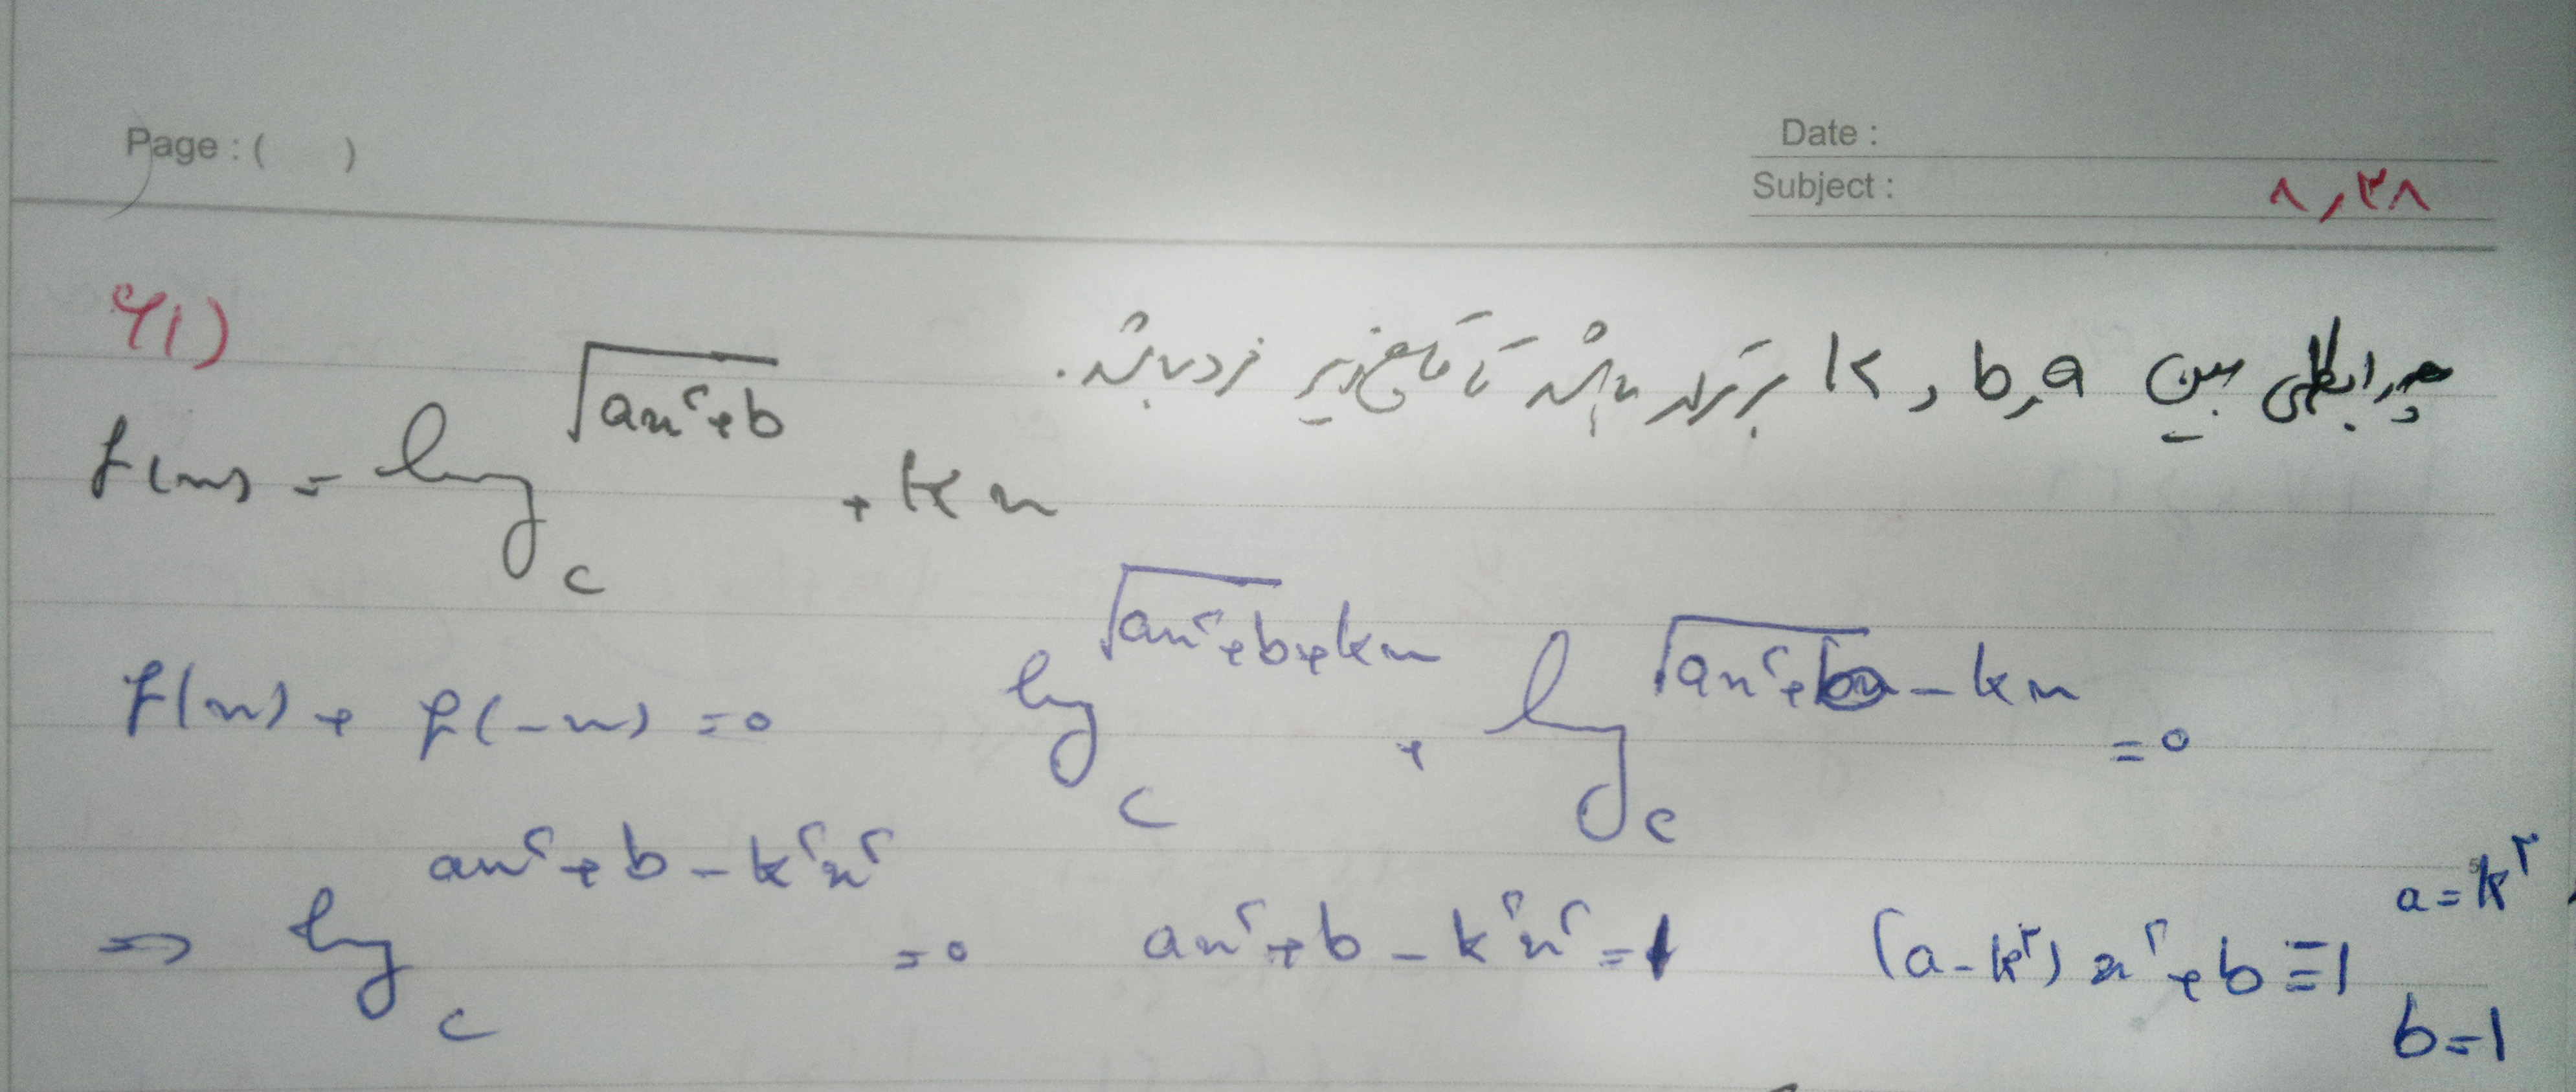 Page : ( )
Date :
Subject : ۸٫۲۸
۶۱) چه رابطه‌ی بین a و b و k برقرار باشد تا تابع زیر فرد باشد.
f(x) = log_c √(ax²+b) + kx
f(x) + f(-x) = 0 log_c √(ax²+b)+kx + log_c √(ax²+b) - kx = 0
⇒ log_c ax²+b-k²x² = 0 ax²+b-k²x² = 1 (a-k²)x²+b ≡ 1 a=k²
b=1